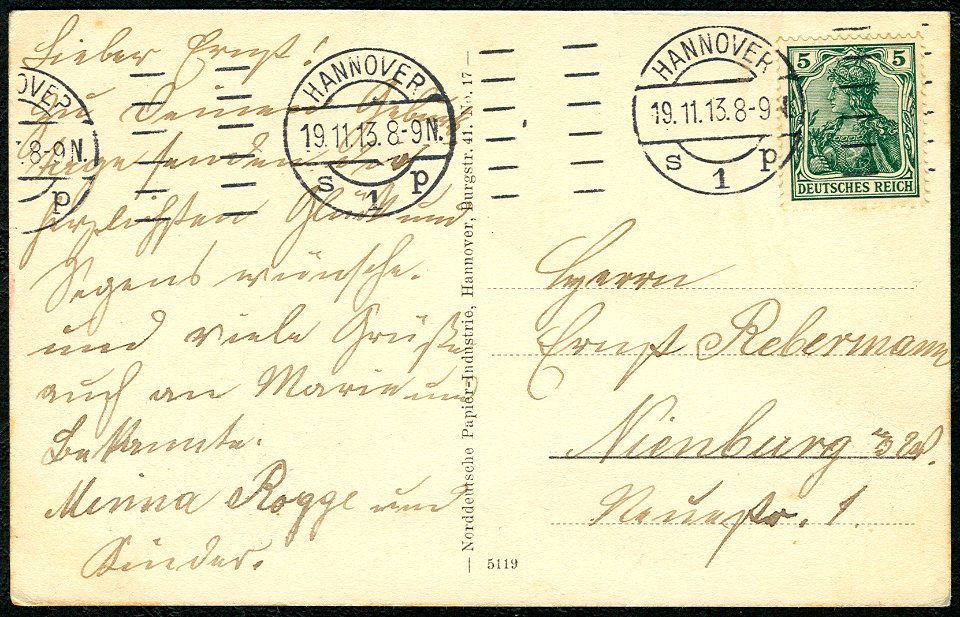 Lieber Ernst!
Zu Deinem Geburts
tage senden wir
herzlichsten Glück und
Segens wünsche.
und viele Grüße
auch an Marie und
Bekannte.
Minna Rogge und
Kinder.
OVER
8-9 N.
p
HANNOVER
19.11.13.8-9 N.
s 1 p
Norddeutsche Papier-Industrie, Hannover, Burgstr. 41. No. 17
5119
HANNOVER
19.11.13.8-9 N.
s 1 p
5 5
DEUTSCHES REICH
Herrn
Ernst Rebermann
Nienburg a/W.
Neuestr. 1.